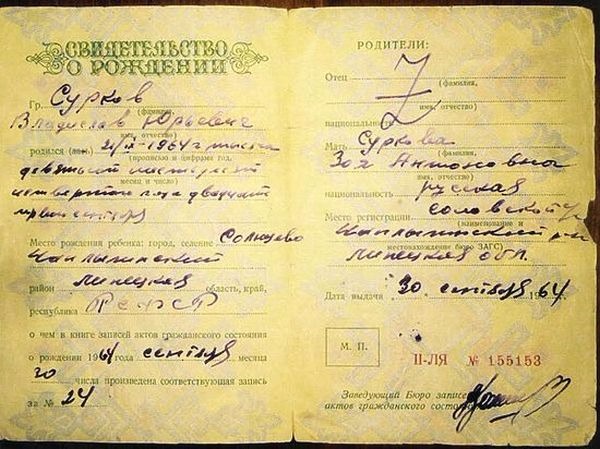 СВИДЕТЕЛЬСТВО
О РОЖДЕНИИ
Гр. Сурков
(фамилия,
Владислав Юрьевич
имя, отчество)
родился (лась) 21/IX-1964 г тысяча
(прописью и цифрами год,
девятьсот шестьдесят
месяц и число)
четвертого года двадцать
первого сентября
Место рождения ребенка: город, селение Солнцево
Чаплыгинский
район Липецкая область, край,
республика РСФСР
о чем в книге записей актов гражданского состояния
о рождении 1964 года сентября месяца
30 числа произведена соответствующая запись
за № 24
РОДИТЕЛИ:
Отец
(фамилия,
имя, отчество)
национальность
Мать Суркова
(фамилия,
Зоя Антоновна
имя, отчество)
национальность русская
Место регистрации Соловской
(наименование и
Чаплыгинский р-н
местонахождение бюро ЗАГС)
Липецкая обл.
Дата выдачи 30 сентября 1964
М. П.
II-ЛЯ № 155153
Заведующий Бюро записи
актов гражданского состояния